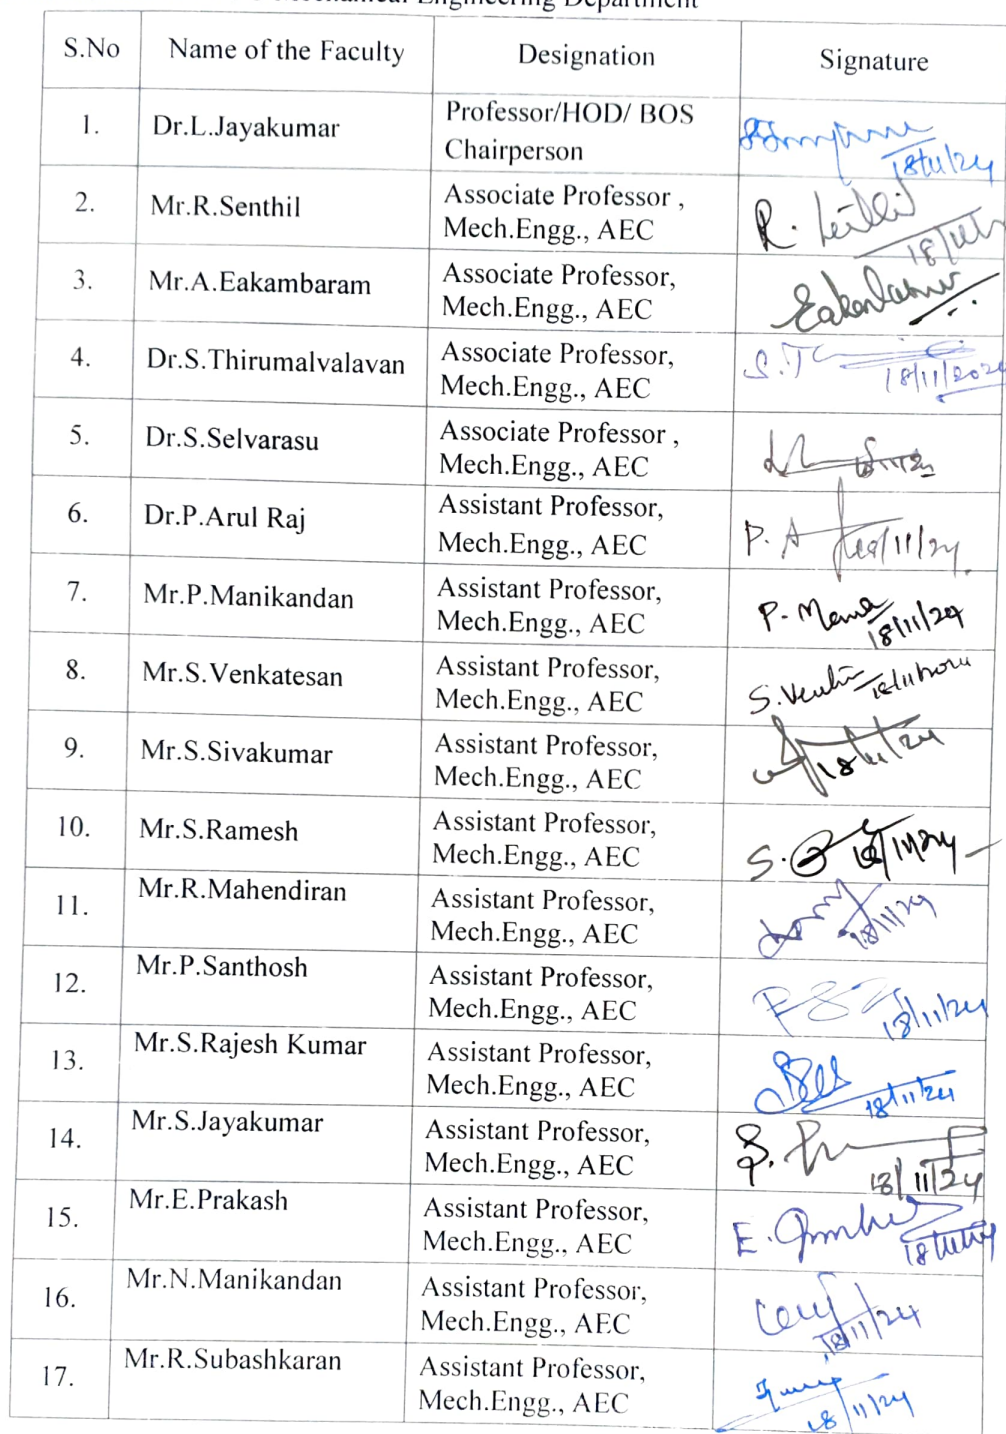 Mechanical Engineering Department
S.No Name of the Faculty Designation Signature
1. Dr.L.Jayakumar Professor/HOD/ BOS
Chairperson
18/11/24
2. Mr.R.Senthil Associate Professor ,
Mech.Engg., AEC
R. 18/11/
3. Mr.A.Eakambaram Associate Professor,
Mech.Engg., AEC
4. Dr.S.Thirumalvalavan Associate Professor,
Mech.Engg., AEC
S.T 18/11/2024
5. Dr.S.Selvarasu Associate Professor ,
Mech.Engg., AEC
6. Dr.P.Arul Raj Assistant Professor,
Mech.Engg., AEC
P. A /11/24.
7. Mr.P.Manikandan Assistant Professor,
Mech.Engg., AEC
P. Mana
18/11/24
8. Mr.S.Venkatesan Assistant Professor,
Mech.Engg., AEC
S. 18/11/2024
9. Mr.S.Sivakumar Assistant Professor,
Mech.Engg., AEC
18/11/24
10. Mr.S.Ramesh Assistant Professor,
Mech.Engg., AEC
S. 18/11/24
11. Mr.R.Mahendiran Assistant Professor,
Mech.Engg., AEC
18/11/24
12. Mr.P.Santhosh Assistant Professor,
Mech.Engg., AEC
18/11/24
13. Mr.S.Rajesh Kumar Assistant Professor,
Mech.Engg., AEC
18/11/24
14. Mr.S.Jayakumar Assistant Professor,
Mech.Engg., AEC
S. 18/11/24
15. Mr.E.Prakash Assistant Professor,
Mech.Engg., AEC
E. 18/11/24
16. Mr.N.Manikandan Assistant Professor,
Mech.Engg., AEC
18/11/24
17. Mr.R.Subashkaran Assistant Professor,
Mech.Engg., AEC
18/11/24